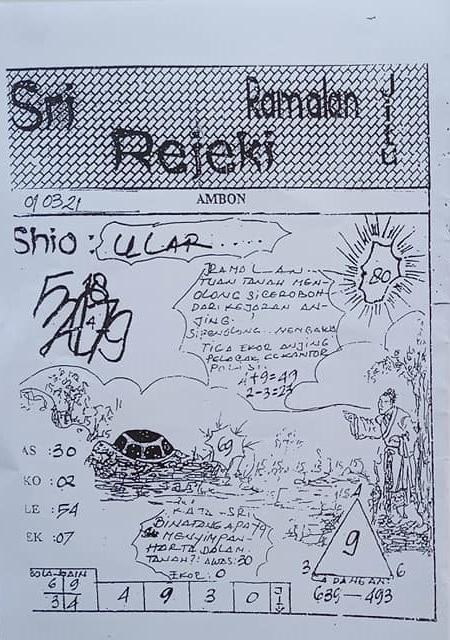 Sri
Ramalan
JITU
Rejeki
01 03.21
AMBON
Shio : ULAR ....
80
RAMALAN...
TUAN TANAH MEN-
OLONG SICEROBOH
DARI KEJARAN AN-
JING.
SIPENOLONG..
TIGA EKOR ANJING
PELACAK
POLISI.
4+9=49
2-3=23
18
4
69
AS :30
KO :02
LE :54
EK :07
KATA-SRI
BINATANG APA YG
MENYIMPAN-
HARTA DALAM
TANAH?! AWAS:30
EKOR: 0
A
9
3
6
CADANGAN:
639—493
6 9
3 4
4 9 3 0